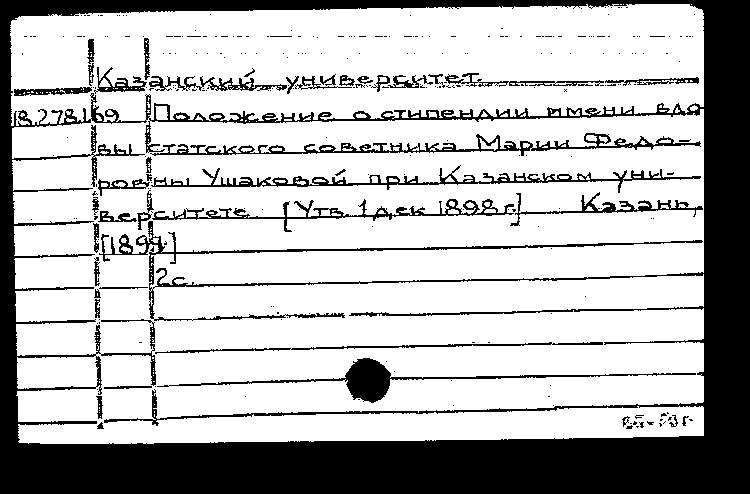 Казанский университет.
18.278.169 Положение о стипендии имени вдо
вы статского советника Марии Федо-
ровны Ушаковой при Казанском уни-
верситете [Утв. 1 дек 1898 г.] Казань,
[1899]
2с.